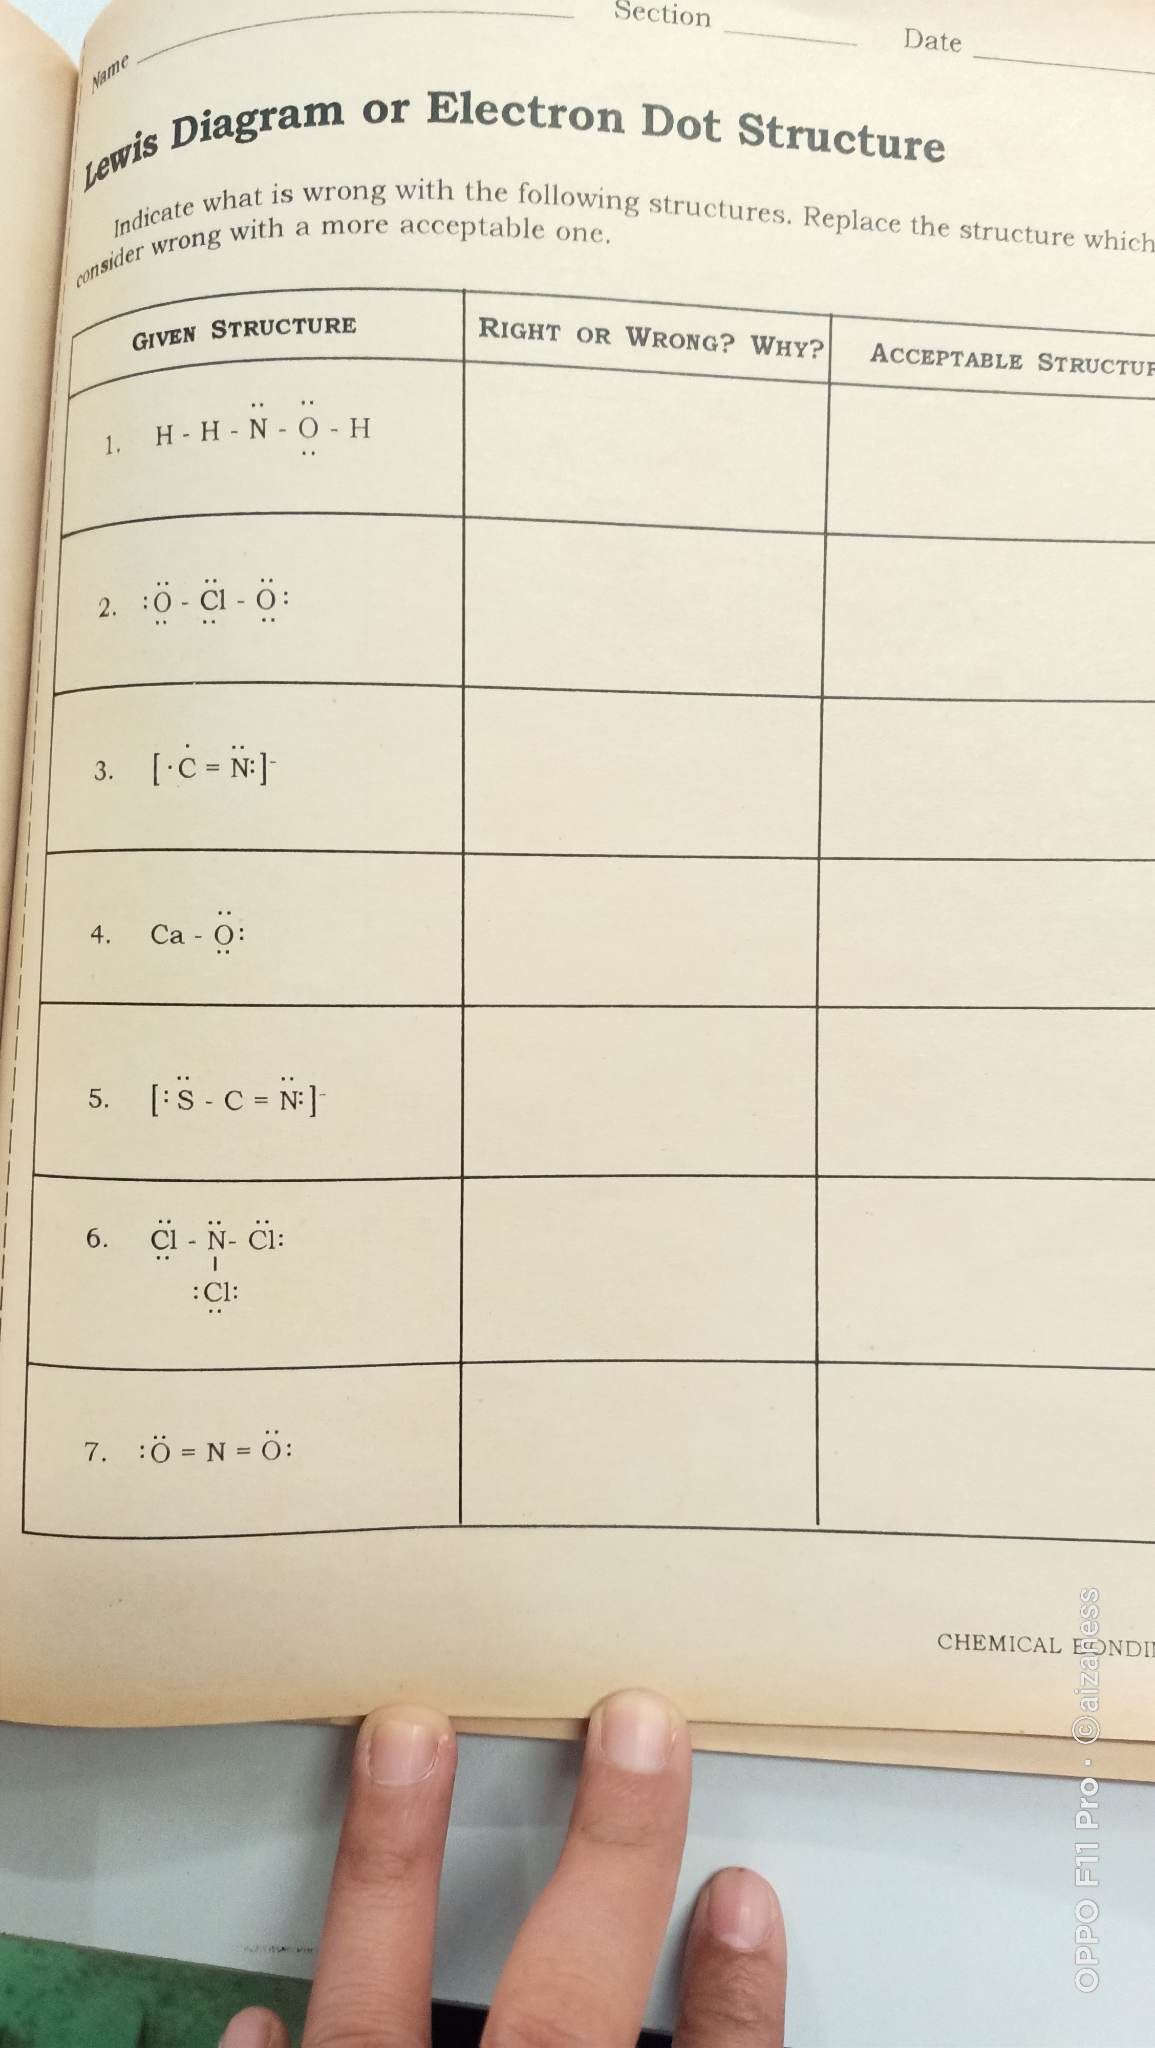 Name Section Date
Lewis Diagram or Electron Dot Structure
Indicate what is wrong with the following structures. Replace the structure which
consider wrong with a more acceptable one.
GIVEN STRUCTURE RIGHT OR WRONG? WHY? ACCEPTABLE STRUCTUR
1. H - H - N̈ - Ö̤ - H
2. :Ö̤ - C̤̈l - Ö̤:
3. [·Ċ = N̈:]⁻
4. Ca - Ö̤:
5. [:S̈ - C = N̈:]⁻
6. C̤̈l - N̈ - C̈l:
|
:C̤l:
7. :Ö = N = Ö:
CHEMICAL BONDI
OPPO F11 Pro · ©aizaness